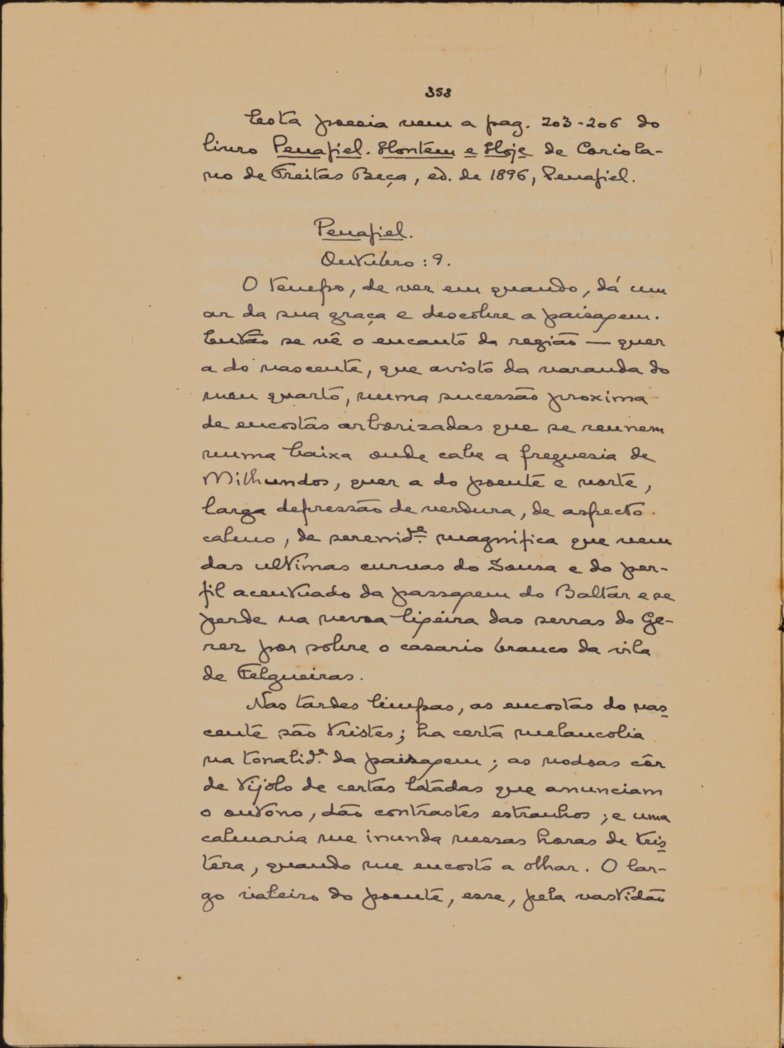 353
Esta poesia vem a pag. 203-206 do
livro Penafiel. Hontem e Hoje de Coriola-
no de Freitas Beça, ed. de 1896, Penafiel.
Penafiel.
Outubro: 9.
O tempo, de vez em quando, dá um
ar da sua graça e descobre a paisagem.
Então se vê o encanto da região — quer
a do nascente, que avisto da varanda do
meu quarto, numa sucessão proxima
de encostas arborizadas que se reunem
numa baixa onde cabe a freguesia de
Milhundos, quer a do poente e norte,
larga depressão de verdura, de aspecto
calmo, de serenid.e magnifica que vem
das ultimas curvas do Sousa e do per-
fil acentuado da passagem do Baltar e se
perde na nevoa ligeira das serras do Ge-
rez por sobre o casario branco da vila
de Felgueiras.
Nas tardes limpas, as encostas do nas-
cente são tristes; ha certa melancolia
na tonalid.e da paisagem; as nodoas côr
de tijolo de certas latadas que anunciam
o outono, dão contrastes estranhos; e uma
calmaria me inunda nessas horas de tris-
teza, quando me encosto a olhar. O lar-
go valeiro do poente, esse, pela vastidão